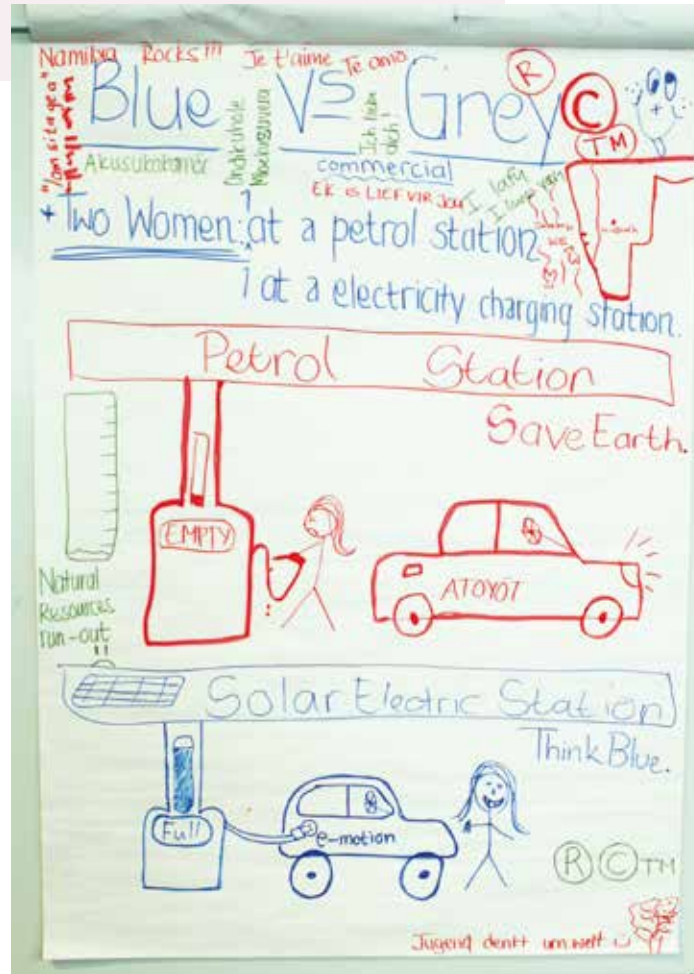 Namibia Rocks!!! Je t'aime Te amo
Blue VS Grey
R C TM
Akusukohamor
commercial
Ich lieb dich!
EK IS LIEF VIR JOU
+ Two Women: 1 at a petrol station
1 at a electricity charging station.
Petrol Station
Save Earth.
EMPTY
ATOYOT
Natural
Resources
run-out
!!
Solar Electric Station
Think Blue.
Full
e-motion
R C TM
Jugend denkt um welt